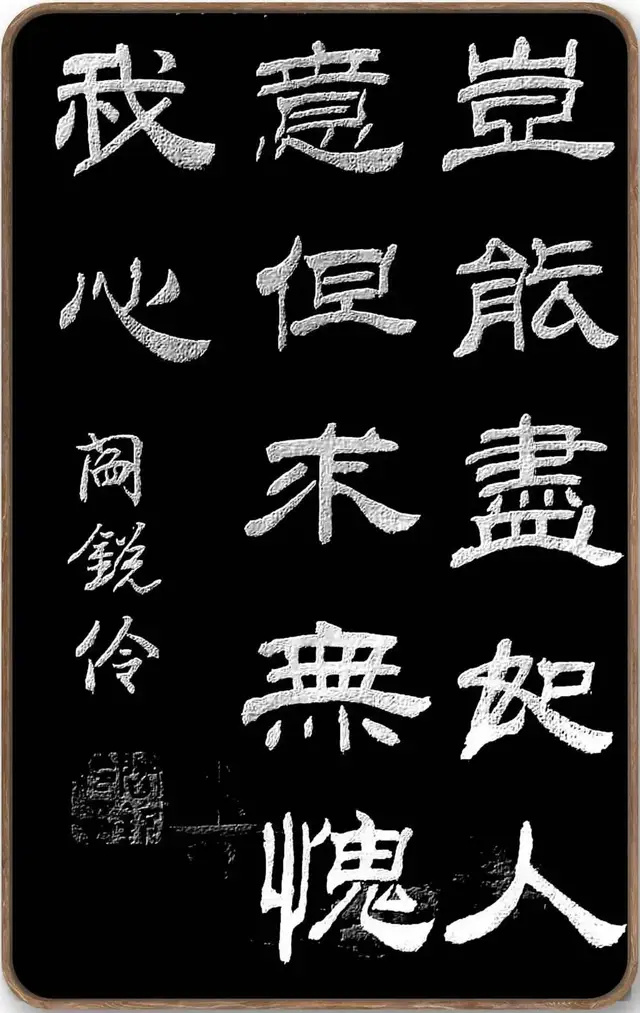 豈能盡如人
意但求無愧
我心
阎銳伶